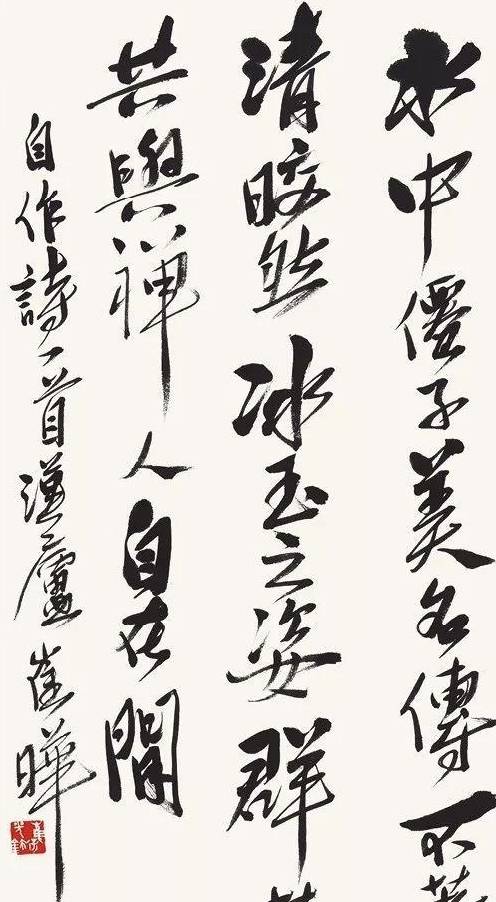 水中僊子美名傳不
清皎然冰玉之姿群
共與禪人自在閒
自作詩一首漢廬崔曄